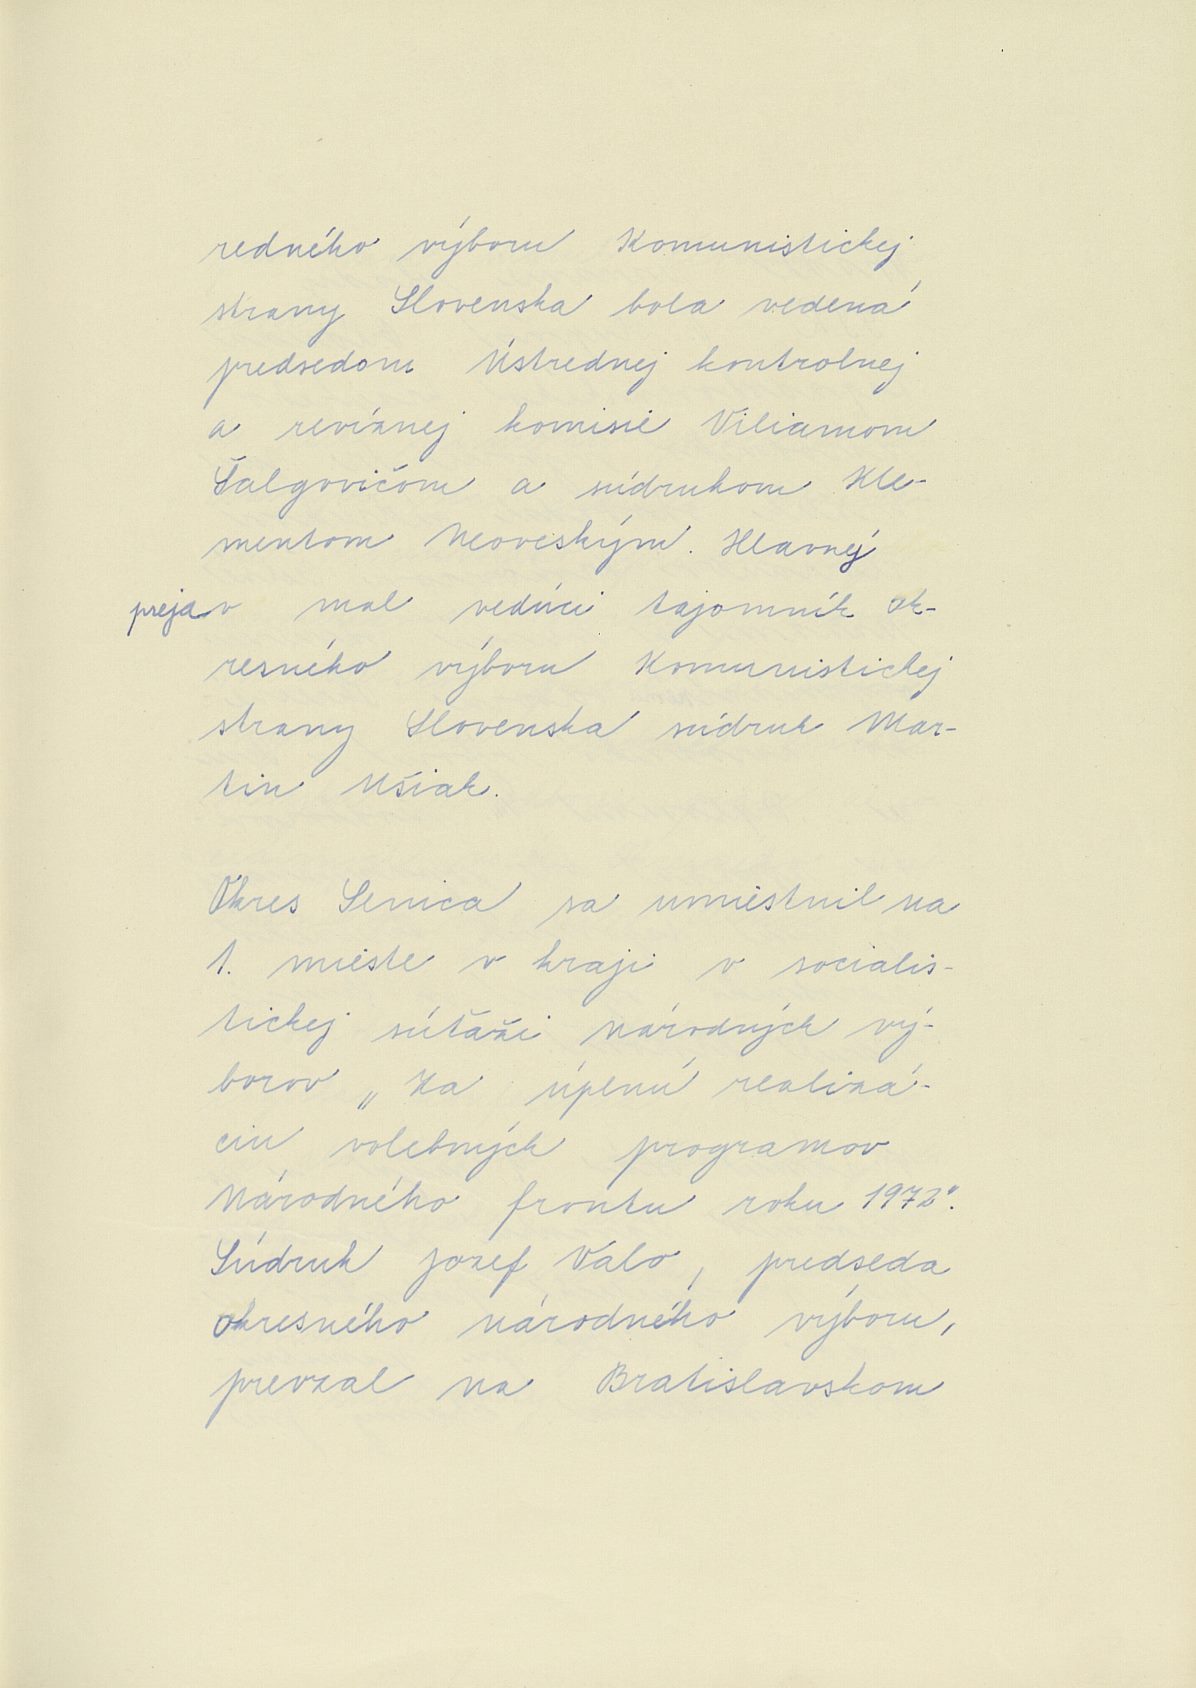 redného výboru Komunistickej
strany Slovenska bola vedená
predsedom Ústrednej kontrolnej
a revíznej komisie Viliamom
Šalgovičom a súdruhom Kle-
mentom Neoveským. Hlavný
prejav mal vedúci tajomník ok-
resného výboru Komunistickej
strany Slovenska súdruh Mar-
tin Ušiak.
Okres Senica sa umiestnil na
1. mieste v kraji v socialis-
tickej súťaži národných vý-
borov „Za úplnú realizá-
ciu volebných programov
Národného frontu roku 1972".
Súdruh Jozef Valo, predseda
okresného národného výboru,
prevzal na Bratislavskom